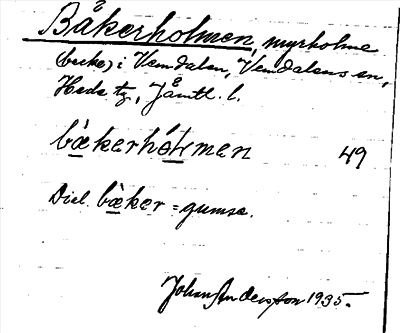 Båkerholmen, myrholme
(backe) i Vemdalen, Vemdalens sn,
Heds tg, Jämtl. l.
bàkerhól̥men 49
Dial. bàker = gumse.
Johan Andersson 1935.